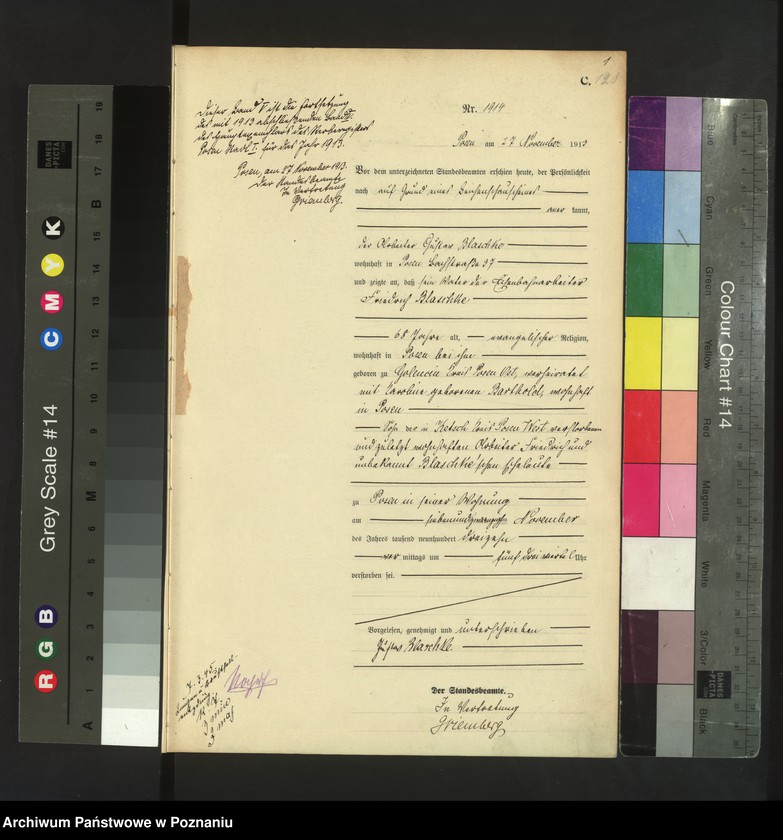 1
C. 128
Dieser Band V ist die Fortsetzung
des mit 1913 abschließenden Bandes
des Hauptexemplars des Sterberegisters
Posen Stadt I. für das Jahr 1913.
Posen, am 27. November 1913.
Der Standesbeamte
In Vertretung
Griemberg.
Nr. 1914
Posen am 27 November 1913
Vor dem unterzeichneten Standesbeamten erschien heute, der Persönlichkeit
nach auf Grund eines Leichenschauscheines
aner kannt,
der Arbeiter Gustav Blaschke
wohnhaft in Posen Bachstraße 37
und zeigte an, daß sein Vater der Eisenbahnarbeiter
Friedrich Blaschke
68 Jahre alt, evangelischer Religion,
wohnhaft in Posen bei ihm
geboren zu Golencin Kreis Posen Ost, verheiratet
mit Karoline geborenen Barthold, wohnhaft
in Posen
Sohn der in Kreis Posen West verstorbenen
und zuletzt wohnhaften Arbeiter Friedrich und
unbekannt Blaschke'schen Eheleute
zu Posen in seiner Wohnung
am siebenundzwanzigsten November
des Jahres tausend neunhundert dreizehn
vor mittags um fünf dreiviertel Uhr
verstorben sei.
Vorgelesen, genehmigt und unterschrieben
Gustav Blaschke.
Der Standesbeamte.
In Vertretung
Griemberg
Grey Scale #14
C M Y K
R G B
A 1 2 3 4 5 6 M 8 9 10 11 12 13 14 15 B 17 18 19
DANES
PICTA
Colour Chart #14
Blue
Cyan
Green
Yellow
Red
Magenta
White
3/Color
Black
DANES
PICTA
Archiwum Państwowe w Poznaniu